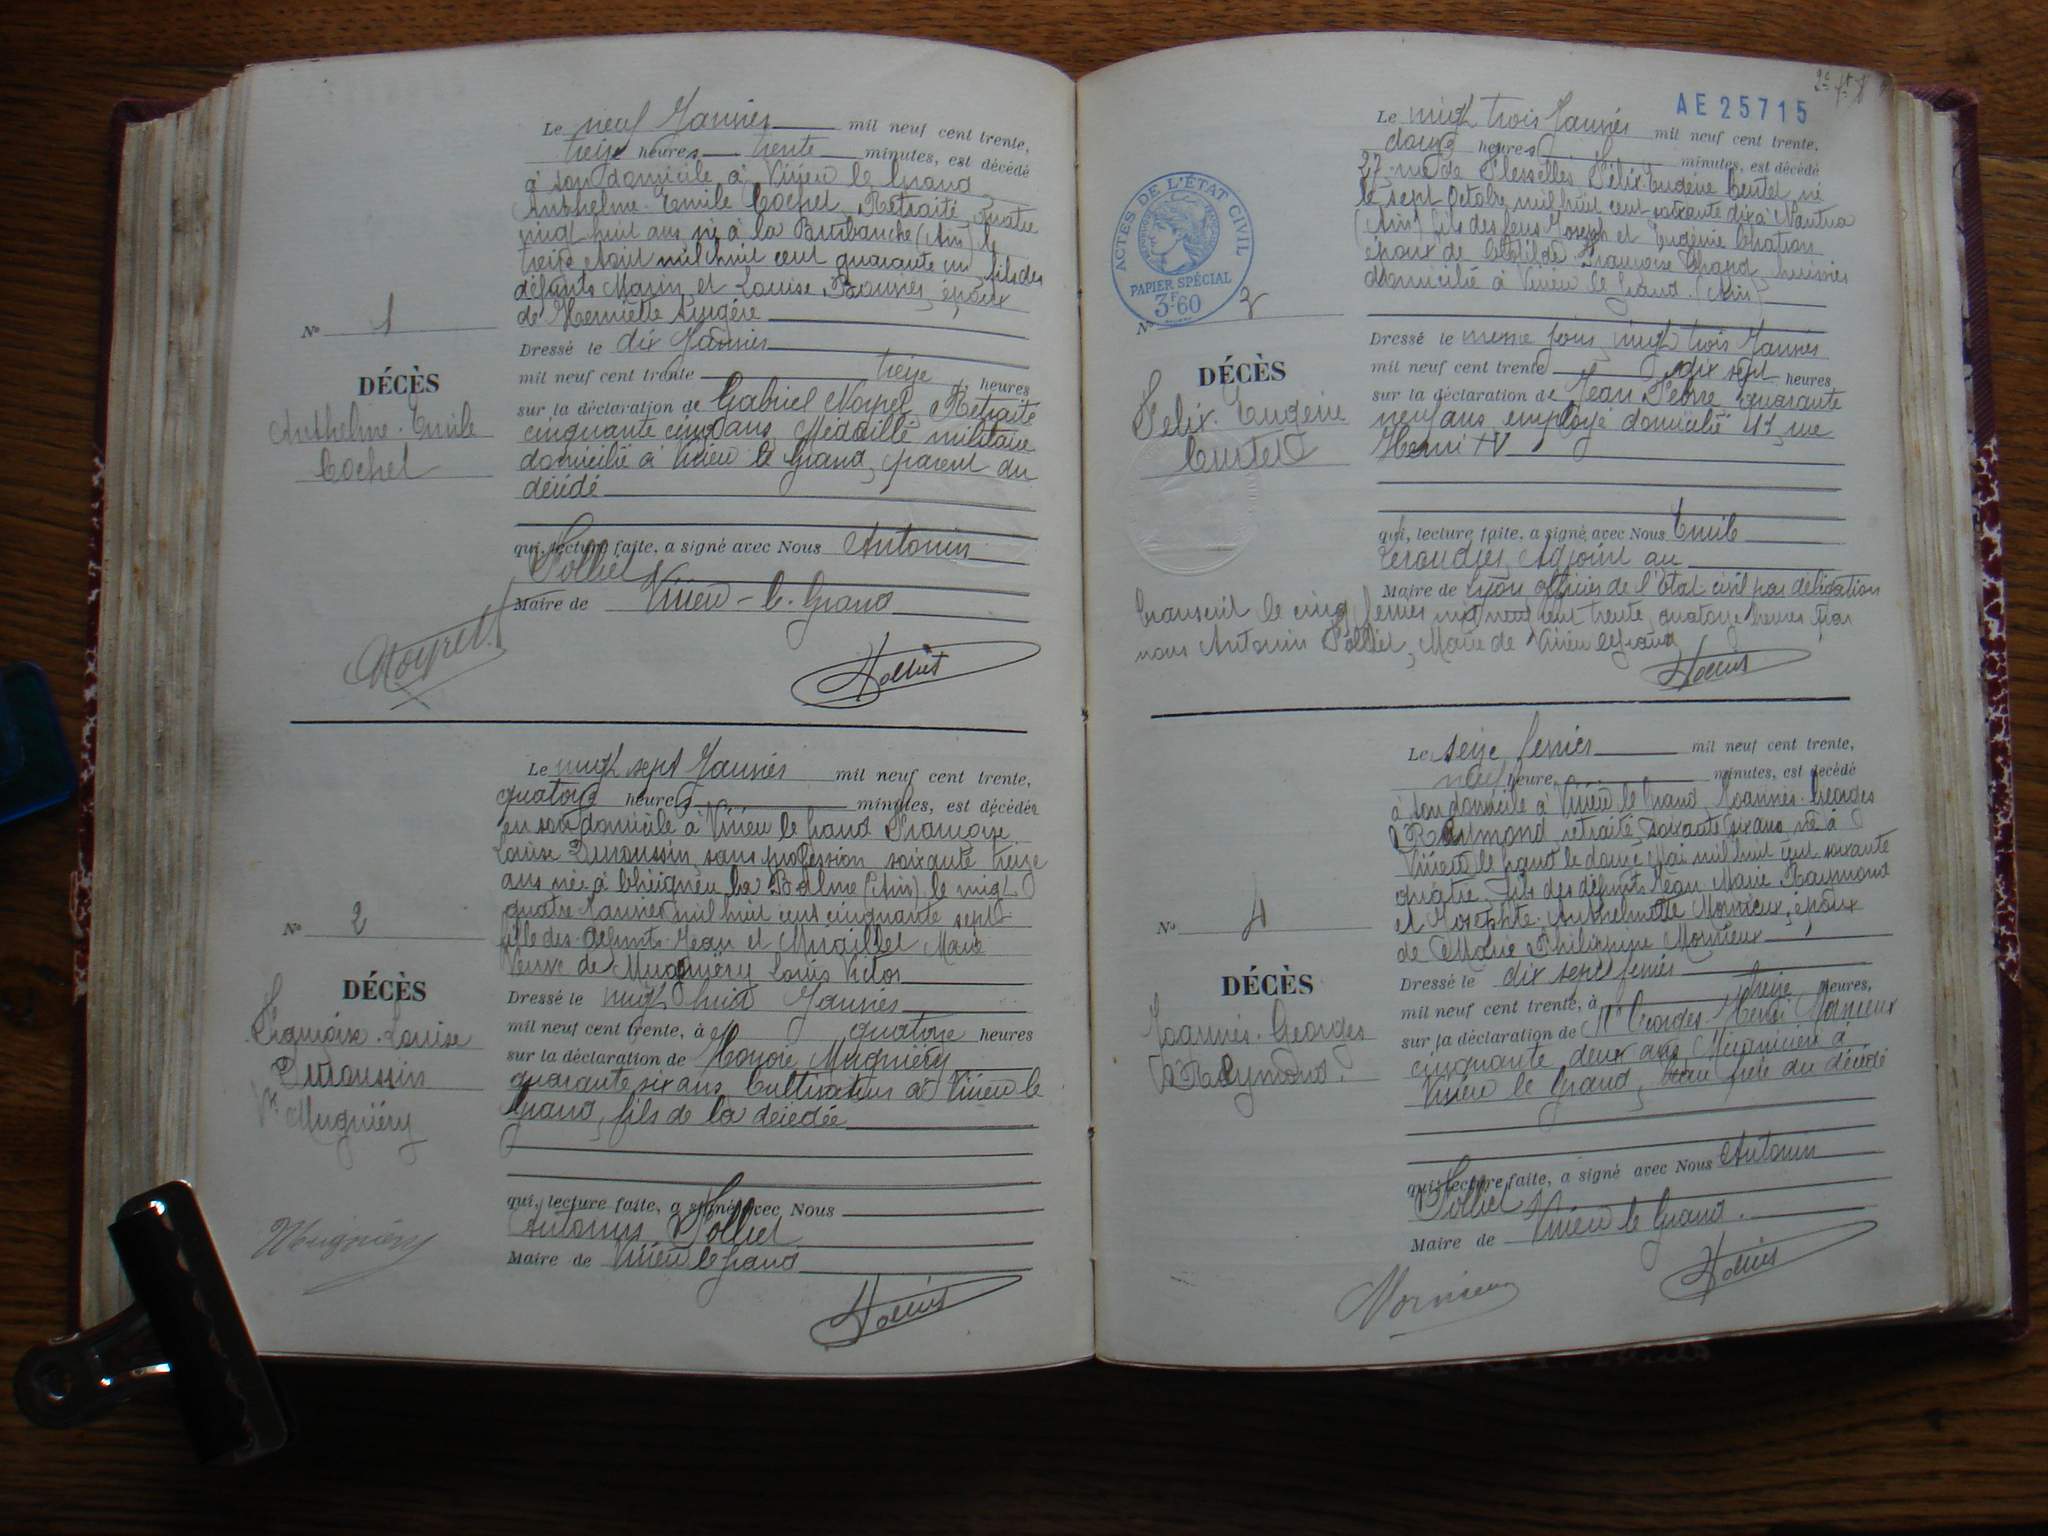 Le neuf Janvier mil neuf cent trente,
treize heures trente minutes, est décédé
à son domicile à Virieu le Grand
Anthelme Emile Cochet, Retraité, quatre
vingt huit ans né à la Burbanche (Ain) le
treize Août mil huit cent quarante un, fils des
défunts Marin et Louise, époux
de Henriette
No 1
DÉCÈS
Anthelme Emile
Cochet
Dressé le dix Janvier
mil neuf cent trente treize heures
sur la déclaration de Gabriel Noyret, Retraité
cinquante cinq ans, Médaillé militaire
domicilié à Virieu le Grand, parent du
décédé
qui, lecture faite, a signé avec Nous Antonin
Polliet
Maire de Virieu-le-Grand
Noyret
Polliet
Le vingt sept Janvier mil neuf cent trente,
quatorze heures minutes, est décédée
en son domicile à Virieu le Grand Françoise
Louise Duroussin, sans profession, soixante treize
ans née à Cheignieu la Balme (Ain) le vingt
quatre Janvier mil huit cent cinquante sept
fille des défunts Jean et Miraillet Marie
Veuve de Mugniéry Louis Victor
No 2
DÉCÈS
Françoise Louise
Duroussin
Ve Mugniéry
Dressé le vingt huit Janvier
mil neuf cent trente, à quatorze heures
sur la déclaration de Honoré Mugniéry
quarante six ans, Cultivateur à Virieu le
Grand, fils de la décédée
qui, lecture faite, a signé avec Nous
Antonin Polliet
Maire de Virieu le Grand
Mugniéry
Polliet
AE 25715
Le vingt trois Janvier mil neuf cent trente,
douze heures minutes, est décédé
27 rue de Flesselles Félix Eugène Curtet né
le sept Octobre mil huit cent soixante dix à Nantua
(Ain) fils des feus Joseph et Eugénie Chatron
époux de Clotilde Françoise Chard, huissier
domicilié à Virieu le Grand (Ain)
ACTES DE L'ÉTAT CIVIL
PAPIER SPÉCIAL
3F60
No 3
DÉCÈS
Felix Eugène
Curtet
Dressé le même jour vingt trois Janvier
mil neuf cent trente dix sept heures
sur la déclaration de Jean Febvre quarante
neuf ans, employé domicilié 41, rue
Henri IV
qui, lecture faite, a signé avec Nous Emile
Adjoint au
Maire de Lyon officier de l'état civil par délégation
Transcrit le cinq fevrier mil neuf cent trente, quatorze heures par
nous Antonin Polliet, Maire de Virieu le Grand
Polliet
Le seize fevrier mil neuf cent trente,
neuf heure, minutes, est décédé
à son domicile à Virieu le Grand, Joannès Georges
Raymond, retraité, soixante six ans, né à
Virieu le Grand le douze Mai mil huit cent soixante
quatre, fils des défunts Jean Marie Raymond
et Josephte Anthelmette Mornieux, époux
de Marie Philippine Mornieux
No 4
DÉCÈS
Joannès Georges
Raymond
Dressé le dix sept fevrier
mil neuf cent trente, à treize heures,
sur la déclaration de Mr Georges Henri Mornieux
cinquante deux ans, Mécanicien à
Virieu le Grand, beau frère du décédé
qui, lecture faite, a signé avec Nous Antonin
Polliet
Maire de Virieu le Grand.
Mornieux
Polliet